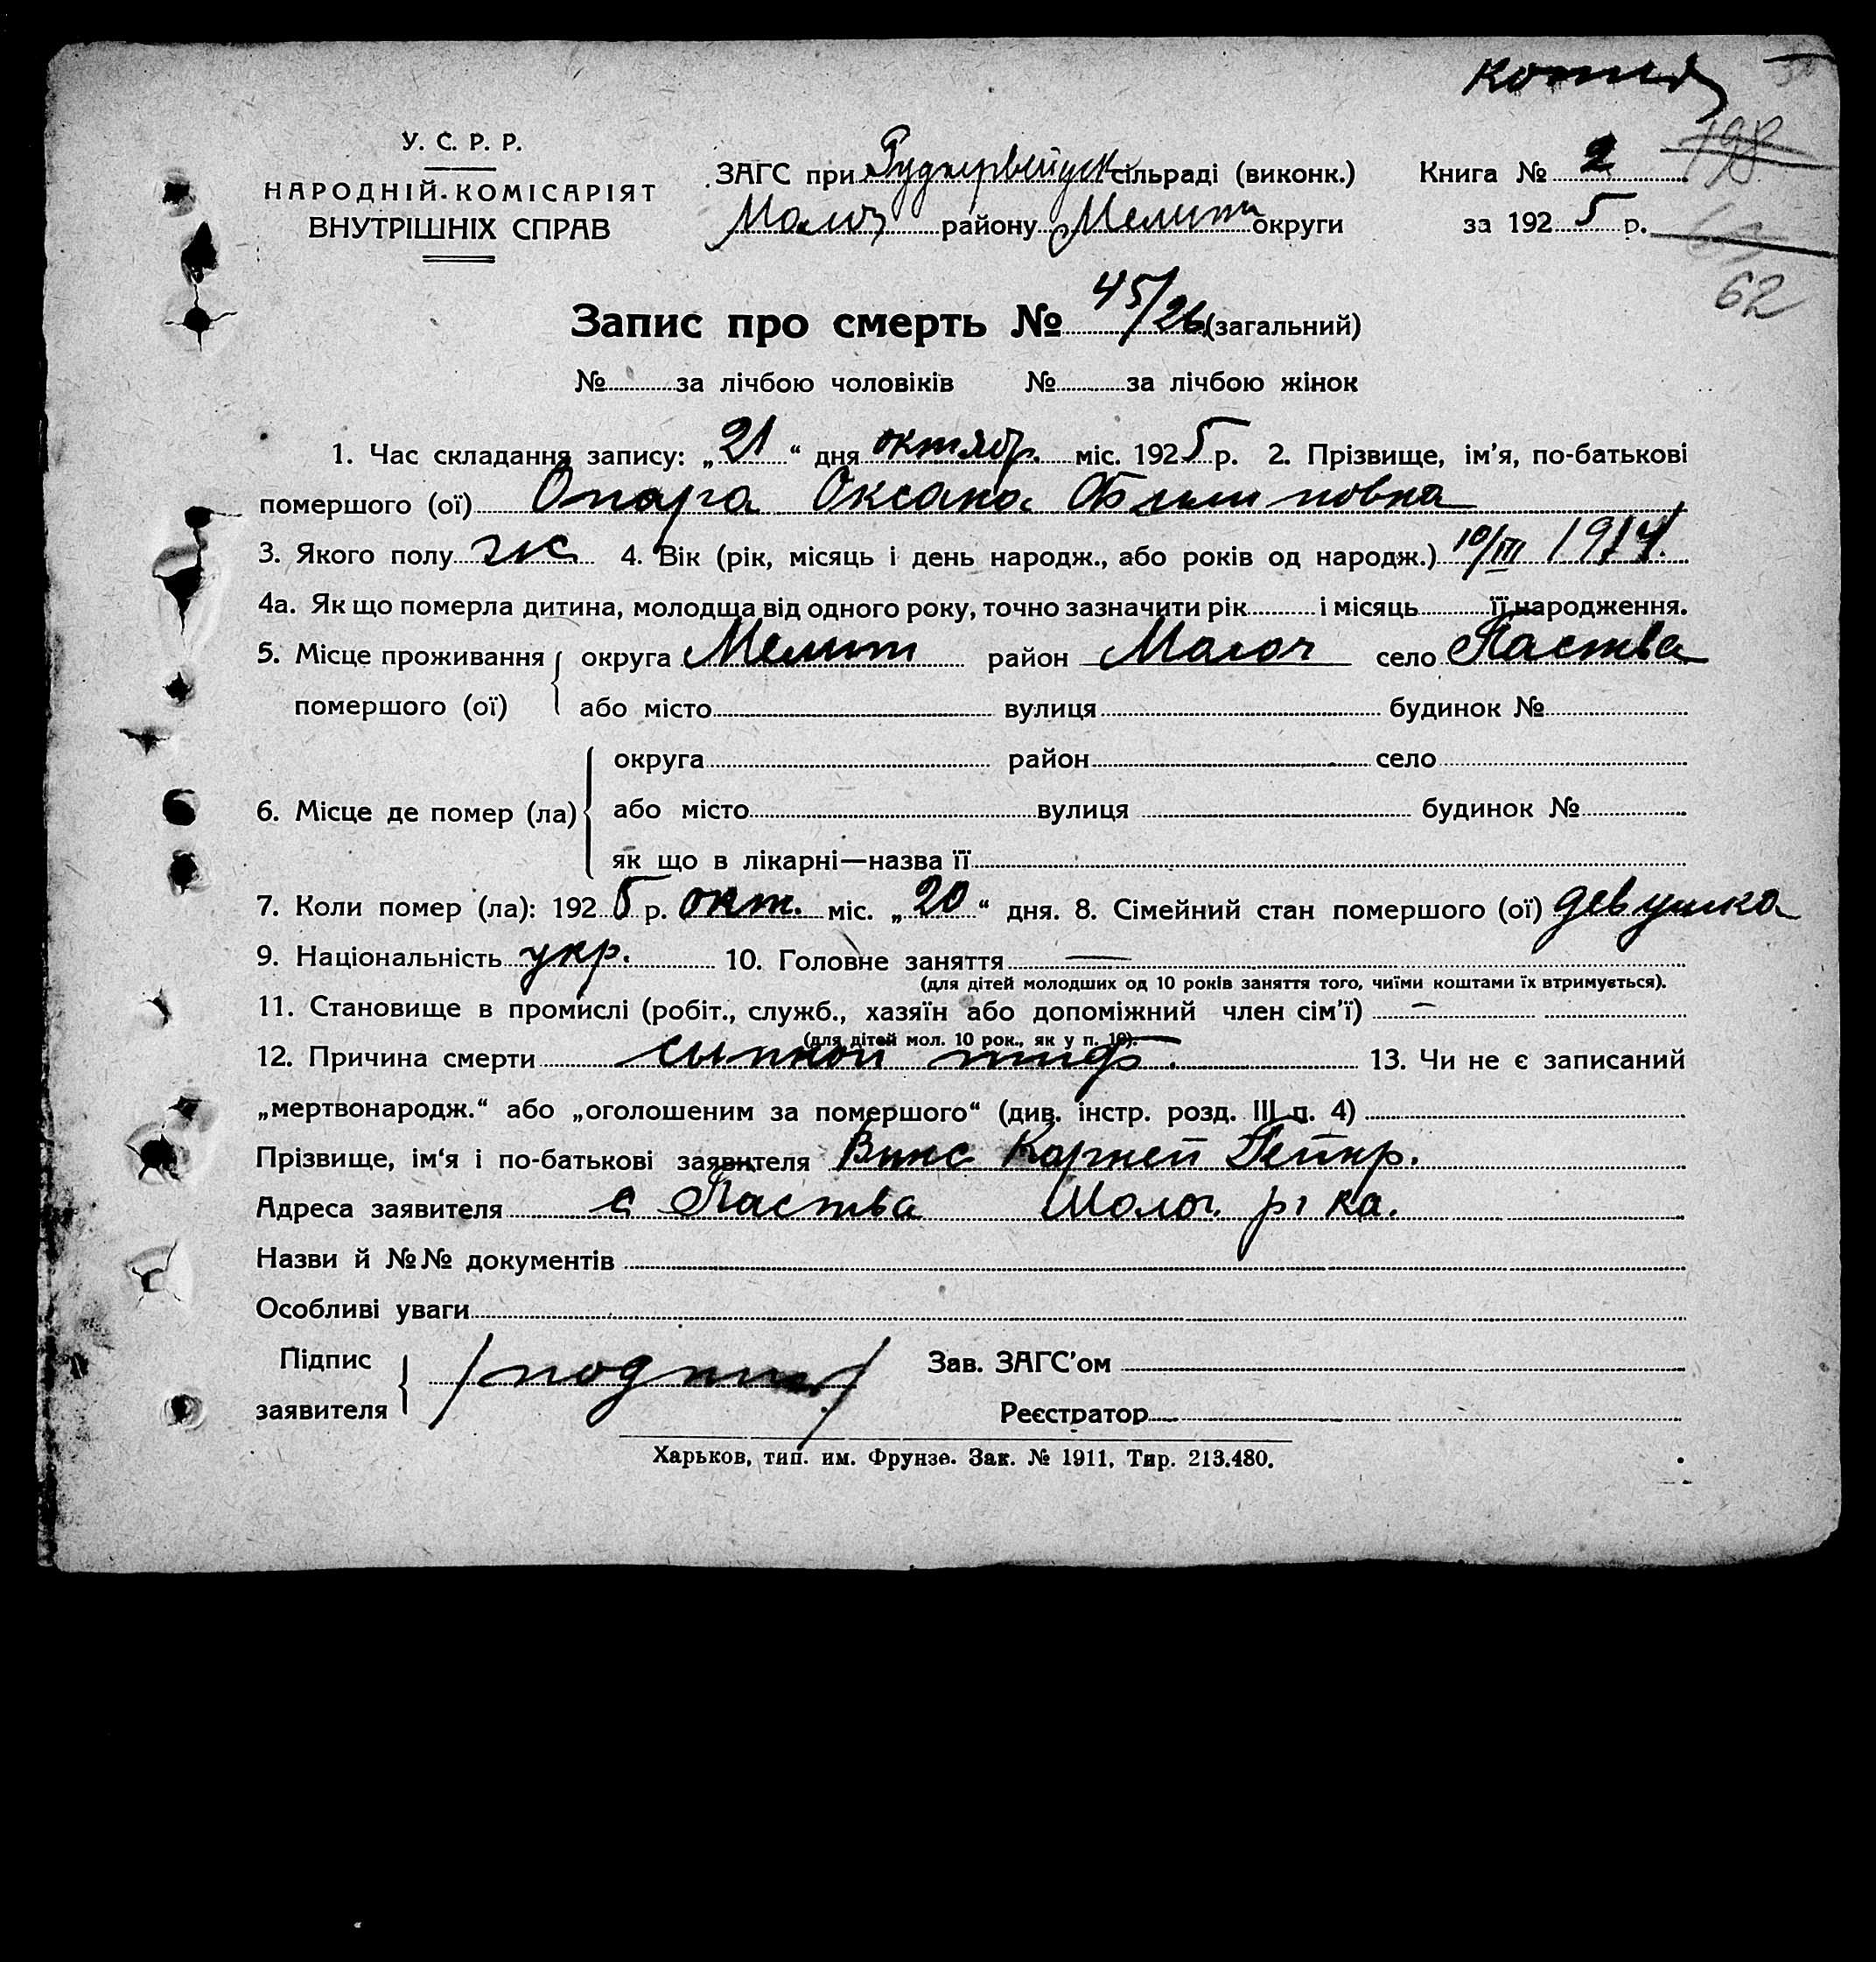 копия
У. С. Р. Р.
НАРОДНІЙ КОМІСАРІЯТ
ВНУТРІШНІХ СПРАВ
ЗАГС при Рудкервейдск сільраді (виконк.) Книга № 2
Молоч району Мелит округи за 1925 р.
198
62
Запис про смерть № 45/26 (загальний)
№ за лічбою чоловіків № за лічбою жінок
1. Час складання запису: „21“ дня октябр. міс. 1925 р. 2. Прізвище, ім'я, по-батькові
помершого (ої) Опара Оксана Филиповна
3. Якого полу ж 4. Вік (рік, місяць і день народж., або років од народж.) 10/III 1914.
4а. Як що померла дитина, молодща від одного року, точно зазначити рік і місяць її народження.
5. Місце проживання округа Мелит район Молоч село Паства
помершого (ої) або місто вулиця будинок №
округа район село
6. Місце де помер (ла) або місто вулиця будинок №
як що в лікарні—назва її
7. Коли помер (ла): 1925 р. окт. міс. „20“ дня. 8. Сімейний стан помершого (ої) девушка
9. Національність укр. 10. Головне заняття —
(для дітей молодших од 10 років заняття того, чиїми коштами їх втримується).
11. Становище в промислі (робіт., служб., хазяїн або допоміжний член сім'ї) —
(для дітей мол. 10 рок., як у п. 10).
12. Причина смерти сыпной тиф. 13. Чи не є записаний
„мертвонародж.“ або „оголошеним за помершого“ (див. інстр. розд. III п. 4)
Прізвище, ім'я і по-батькові заявителя Винс Корней Гейнр.
Адреса заявителя с Паства Молоч. р-ка.
Назви й №№ документів
Особливі уваги
Підпис /подпис/ Зав. ЗАГС'ом
заявителя Реєстратор
Харьков, тип. им. Фрунзе. Зак. № 1911, Тир. 213.480.